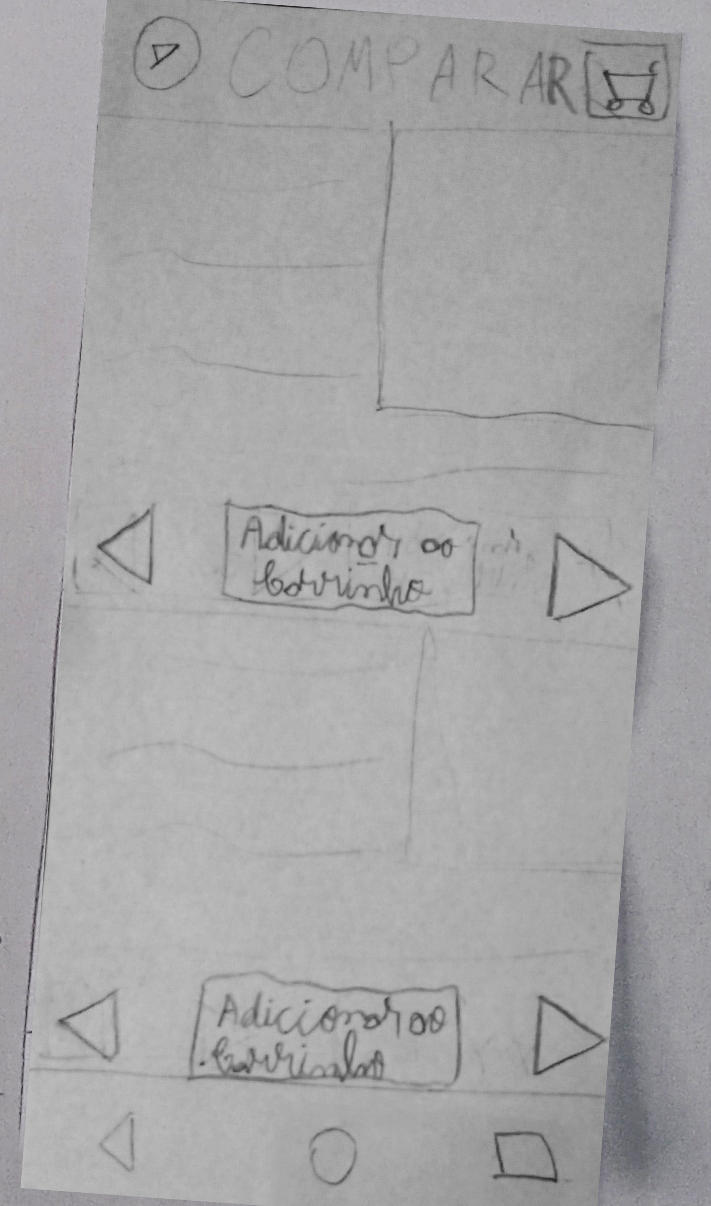 COMPARAR
Adicionar ao
Carrinho
Adicionar ao
Carrinho